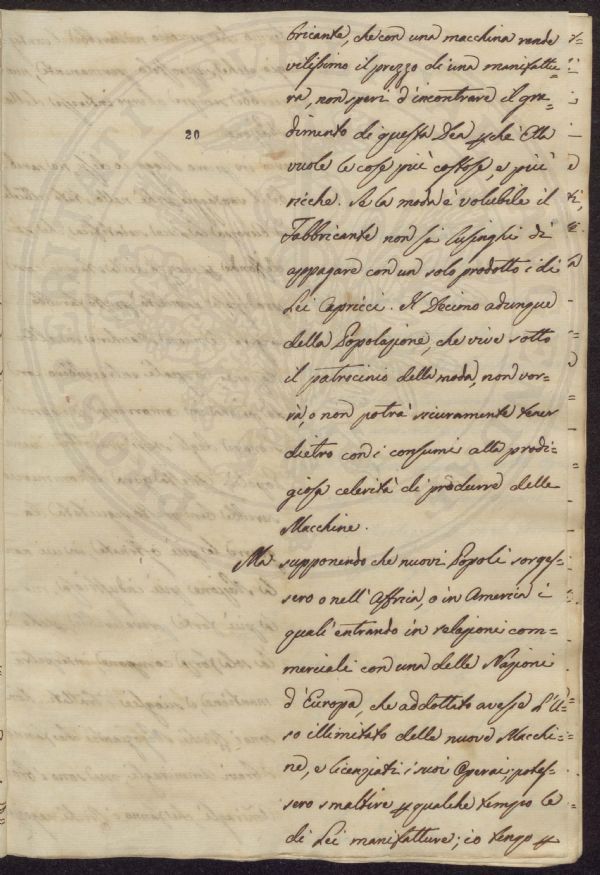 bricante, che con una macchina rende
vilissimo il prezzo di una manifattu=
ra, non speri d'incontrare il gra=
20
dimento di questa Dea pchè Ella
vuole le cose più costose, e più
ricche. Se la moda è volubile il
Fabbricante non si lusinghi di
appagare con un solo prodotto i di
Lei Capricci. Il Decimo adunque
della Popolazione, che vive sotto
il patrocinio della moda, non vor=
rà, o non potrà sicuramente tener
dietro con i consumi alla prodi=
giosa celerità di produrre delle
Macchine.
Ma supponendo che nuovi Popoli sorges=
sero o nell'Affrica, o in America i
quali entrando in relazioni com=
merciali con una delle Nazioni
d'Europa, che addottato avesse l'U=
so illimitato delle nuove Macchi=
ne, e licenziati i suoi Operai; potes=
sero smaltire p qualche tempo le
di Lei manifatture; io tengo p